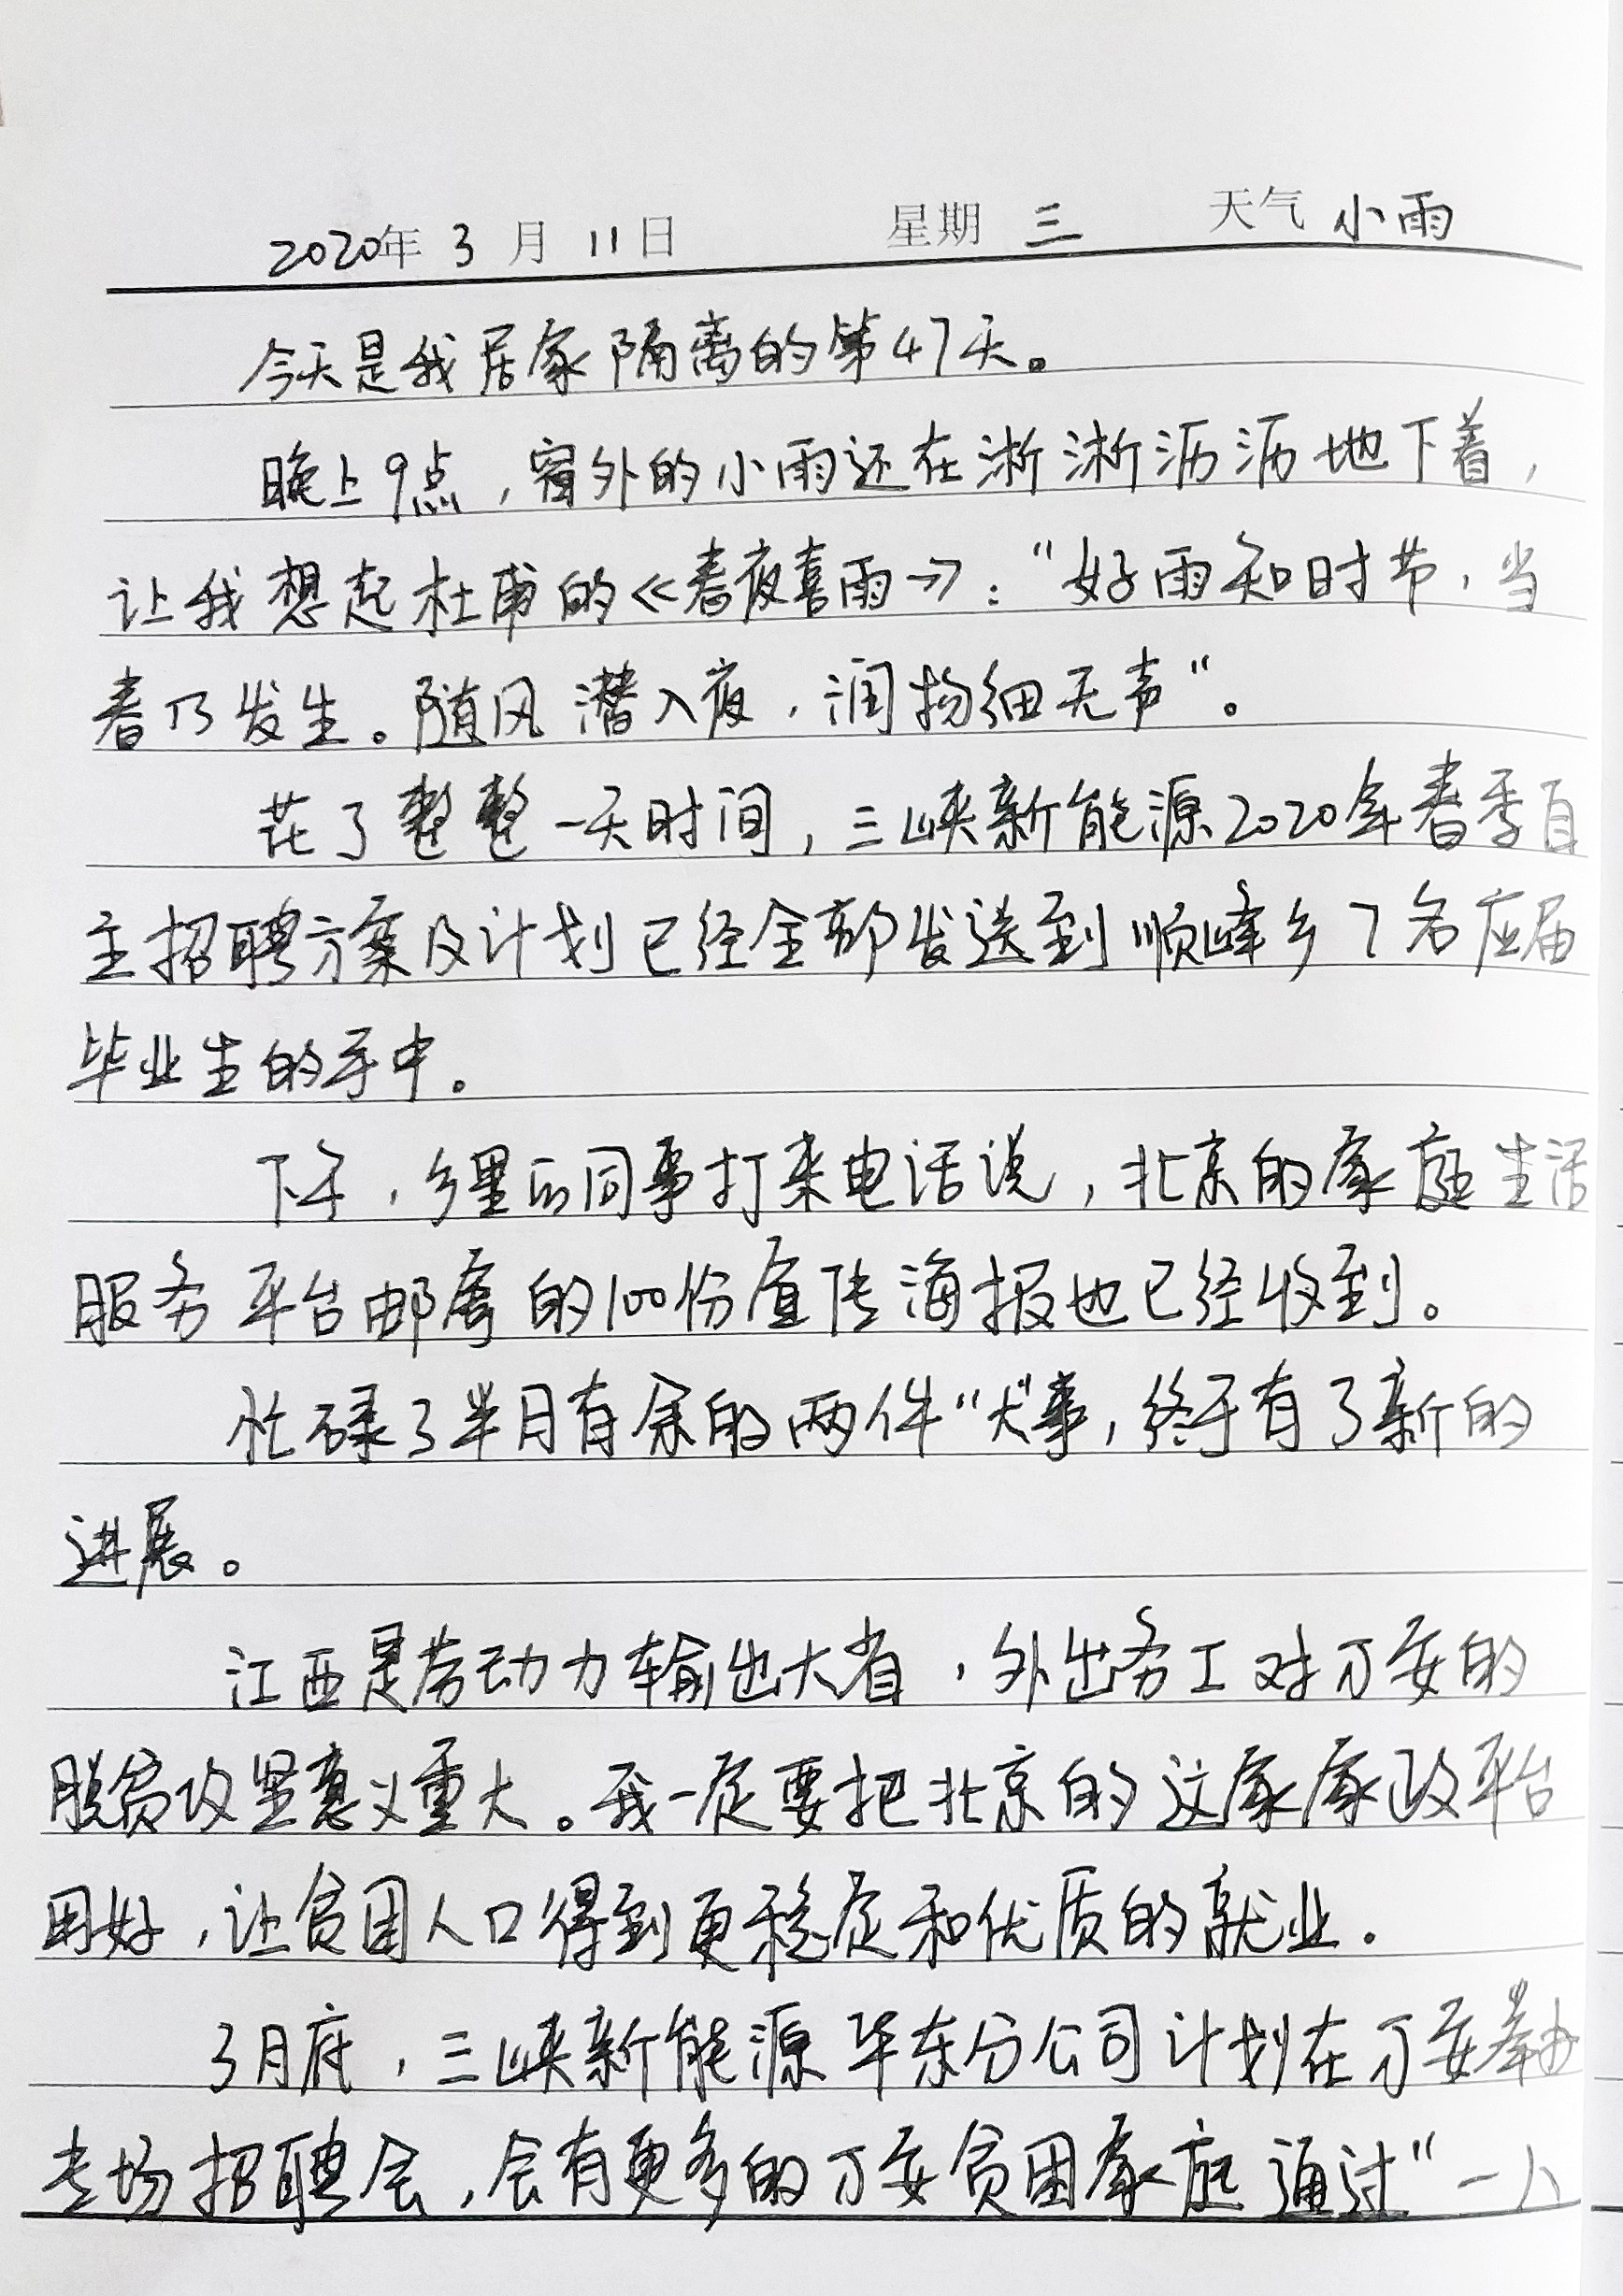 2020年 3 月 11日 星期 三 天气 小雨
今天是我居家隔离的第47天。
晚上9点，窗外的小雨还在淅淅沥沥地下着，
让我想起杜甫的《春夜喜雨》："好雨知时节，当
春乃发生。随风潜入夜，润物细无声"。
花了整整一天时间，三峡新能源2020年春季自
主招聘方案及计划已经全部发送到顺峰乡7名应届
毕业生的手中。
下午，乡里的同事打来电话说，北京的家庭生活
服务平台邮寄的100份宣传海报也已经收到。
忙碌了半月有余的两件"大"事，终于有了新的
进展。
江西是劳动力输出大省，外出务工对万安的
脱贫攻坚意义重大。我一定要把北京的这家家政平台
用好，让贫困人口得到更稳定和优质的就业。
3月底，三峡新能源华东分公司计划在万安举办
专场招聘会，会有更多的万安贫困家庭通过"一人